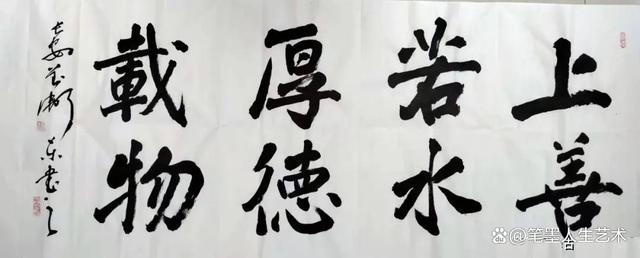 上善
若水
厚德
載物
笔墨人生艺术